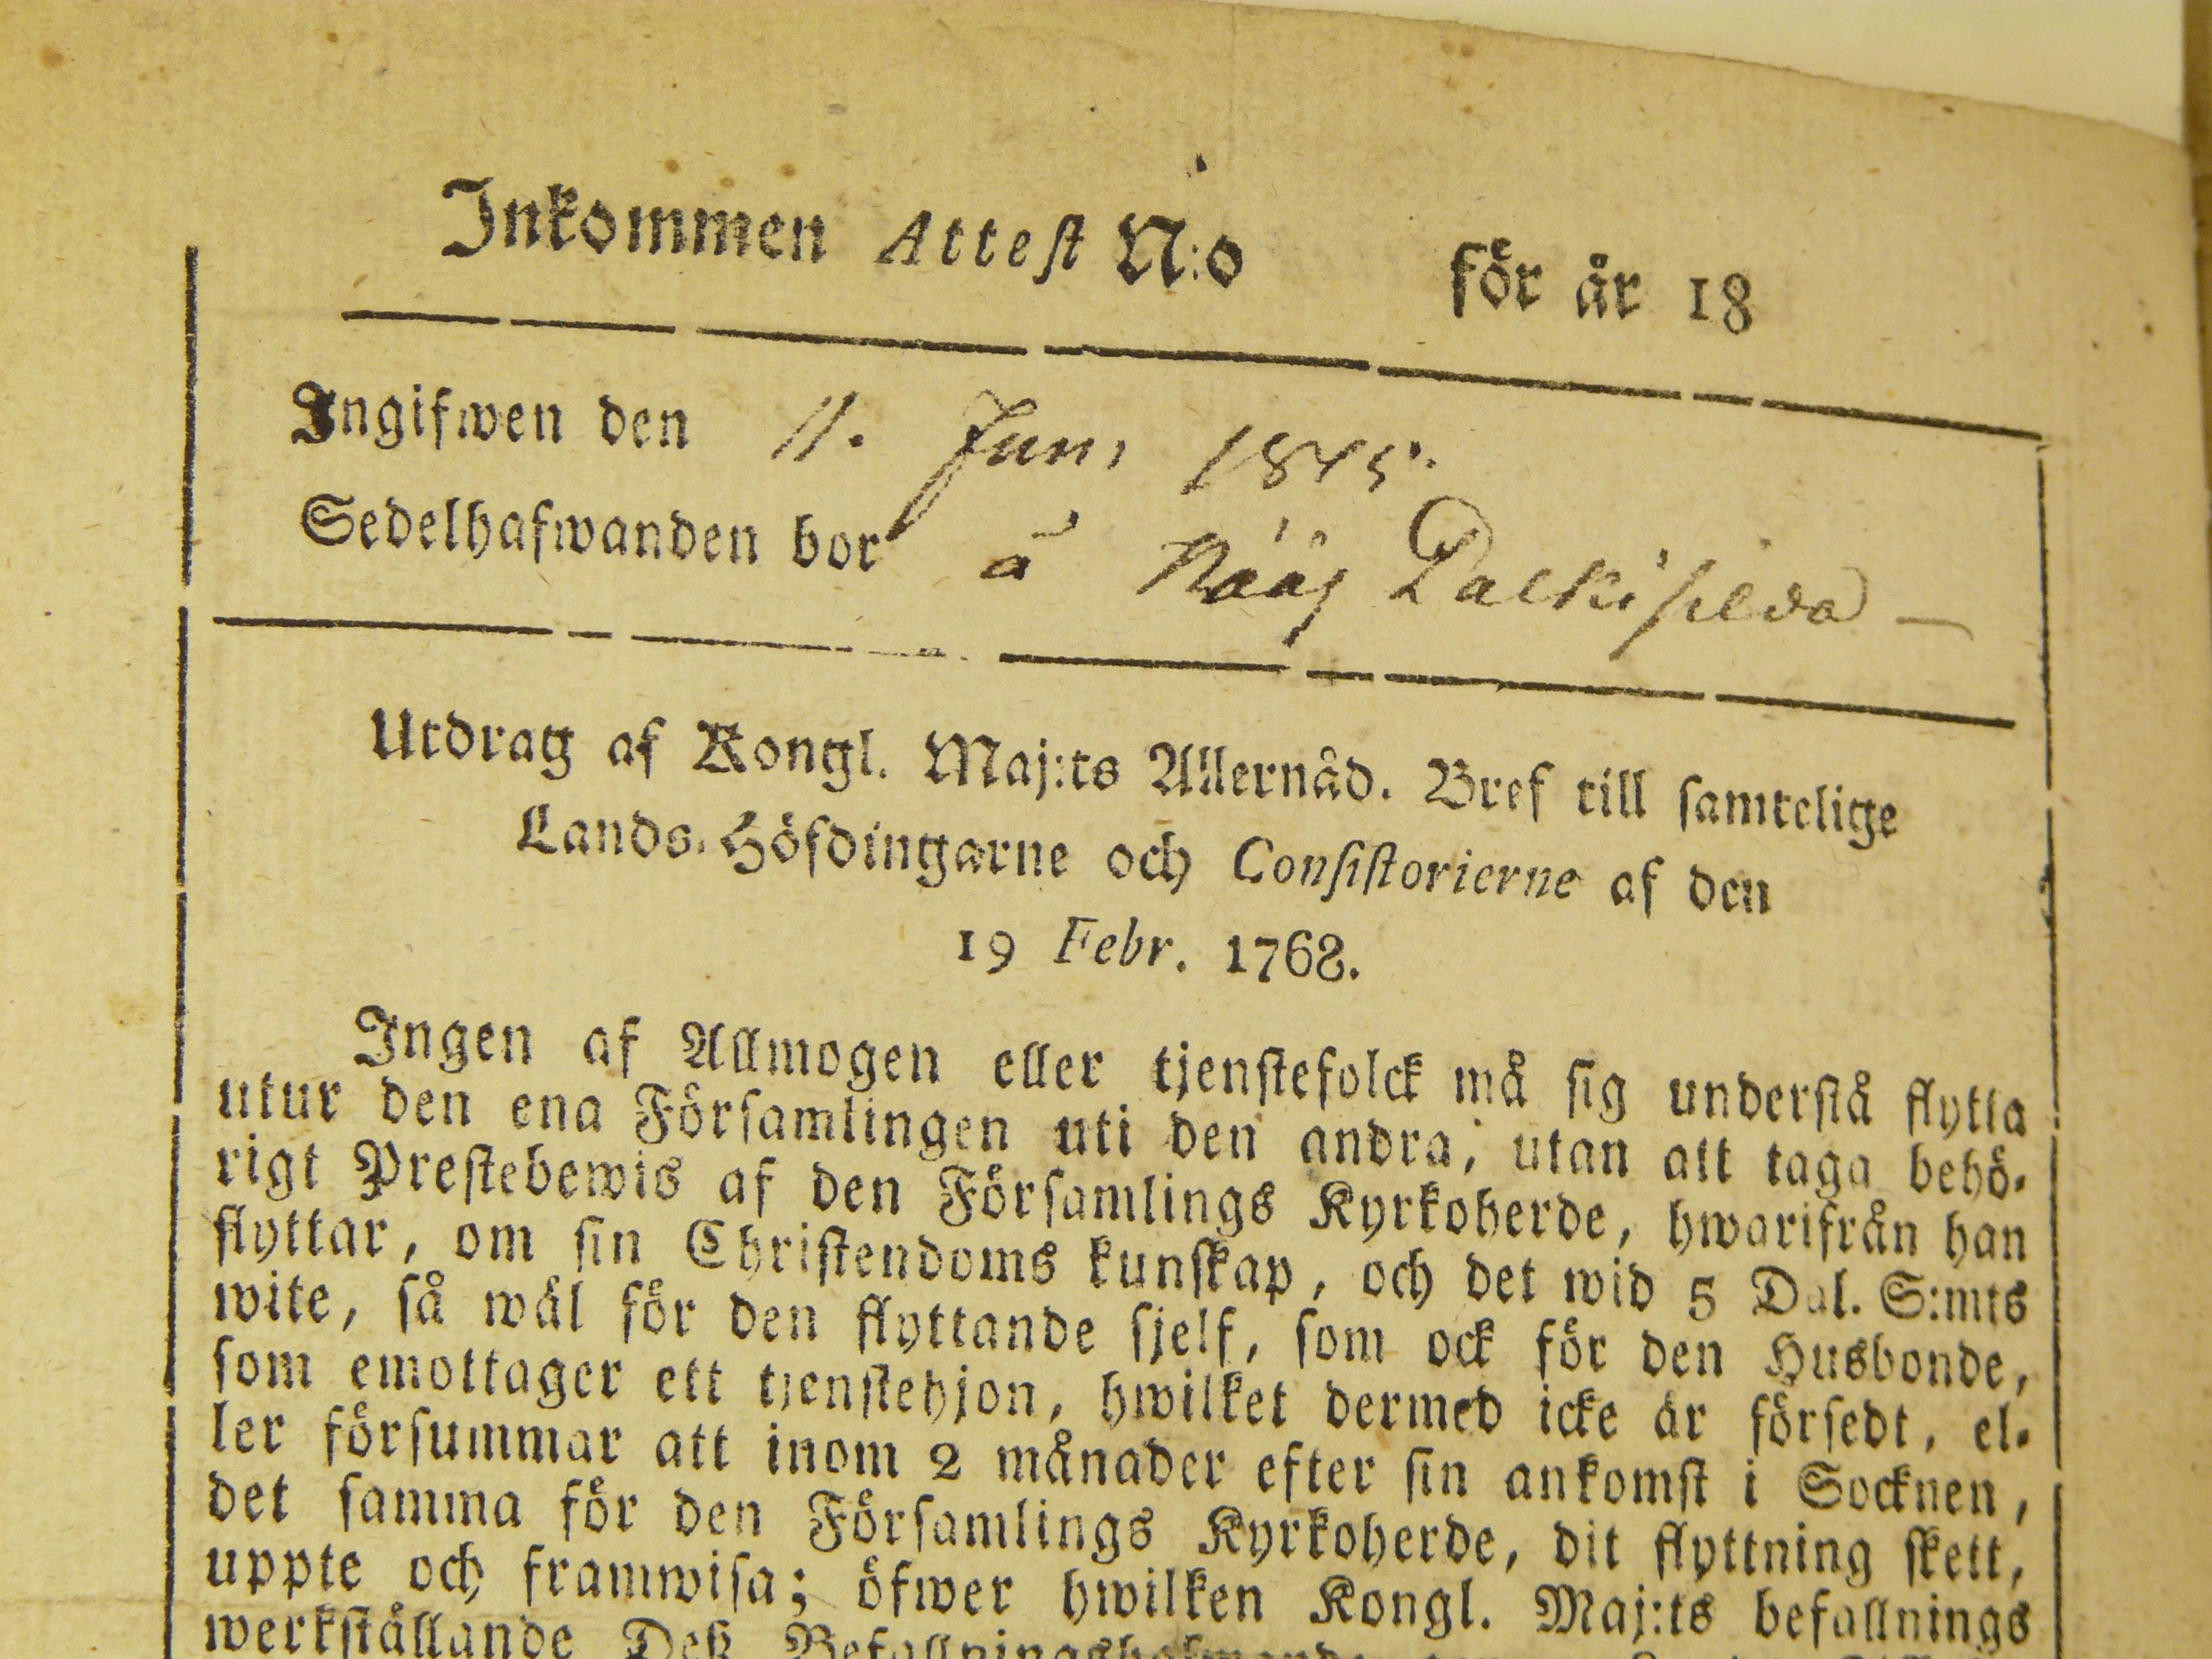 Inkommen Attest N:o för år 18
Ingifwen den 11. Juni 1845.
Sedelhafwanden bor å
Utdrag af Kongl. Maj:ts Allernåd. Bref till samtelige
Lands-Höfdingarne och Consistorierne af den
19 Febr. 1768.
Ingen af Allmogen eller tjenstefolck må sig understå flytta
utur den ena Församlingen uti den andra, utan att taga behö-
rigt Prestebewis af den Församlings Kyrkoherde, hwarifrån han
flyttar, om sin Christendoms kunskap, och det wid 5 Dal. S:mts
wite, så wäl för den flyttande sjelf, som ock för den Husbonde,
som emottager ett tjenstehjon, hwilket dermed icke är försedt, el-
ler försummar att inom 2 månader efter sin ankomst i Socknen,
det samma för den Församlings Kyrkoherde, dit flyttning skett,
uppte och framwisa; öfwer hwilken Kongl. Maj:ts befallnings
werkställande Deß